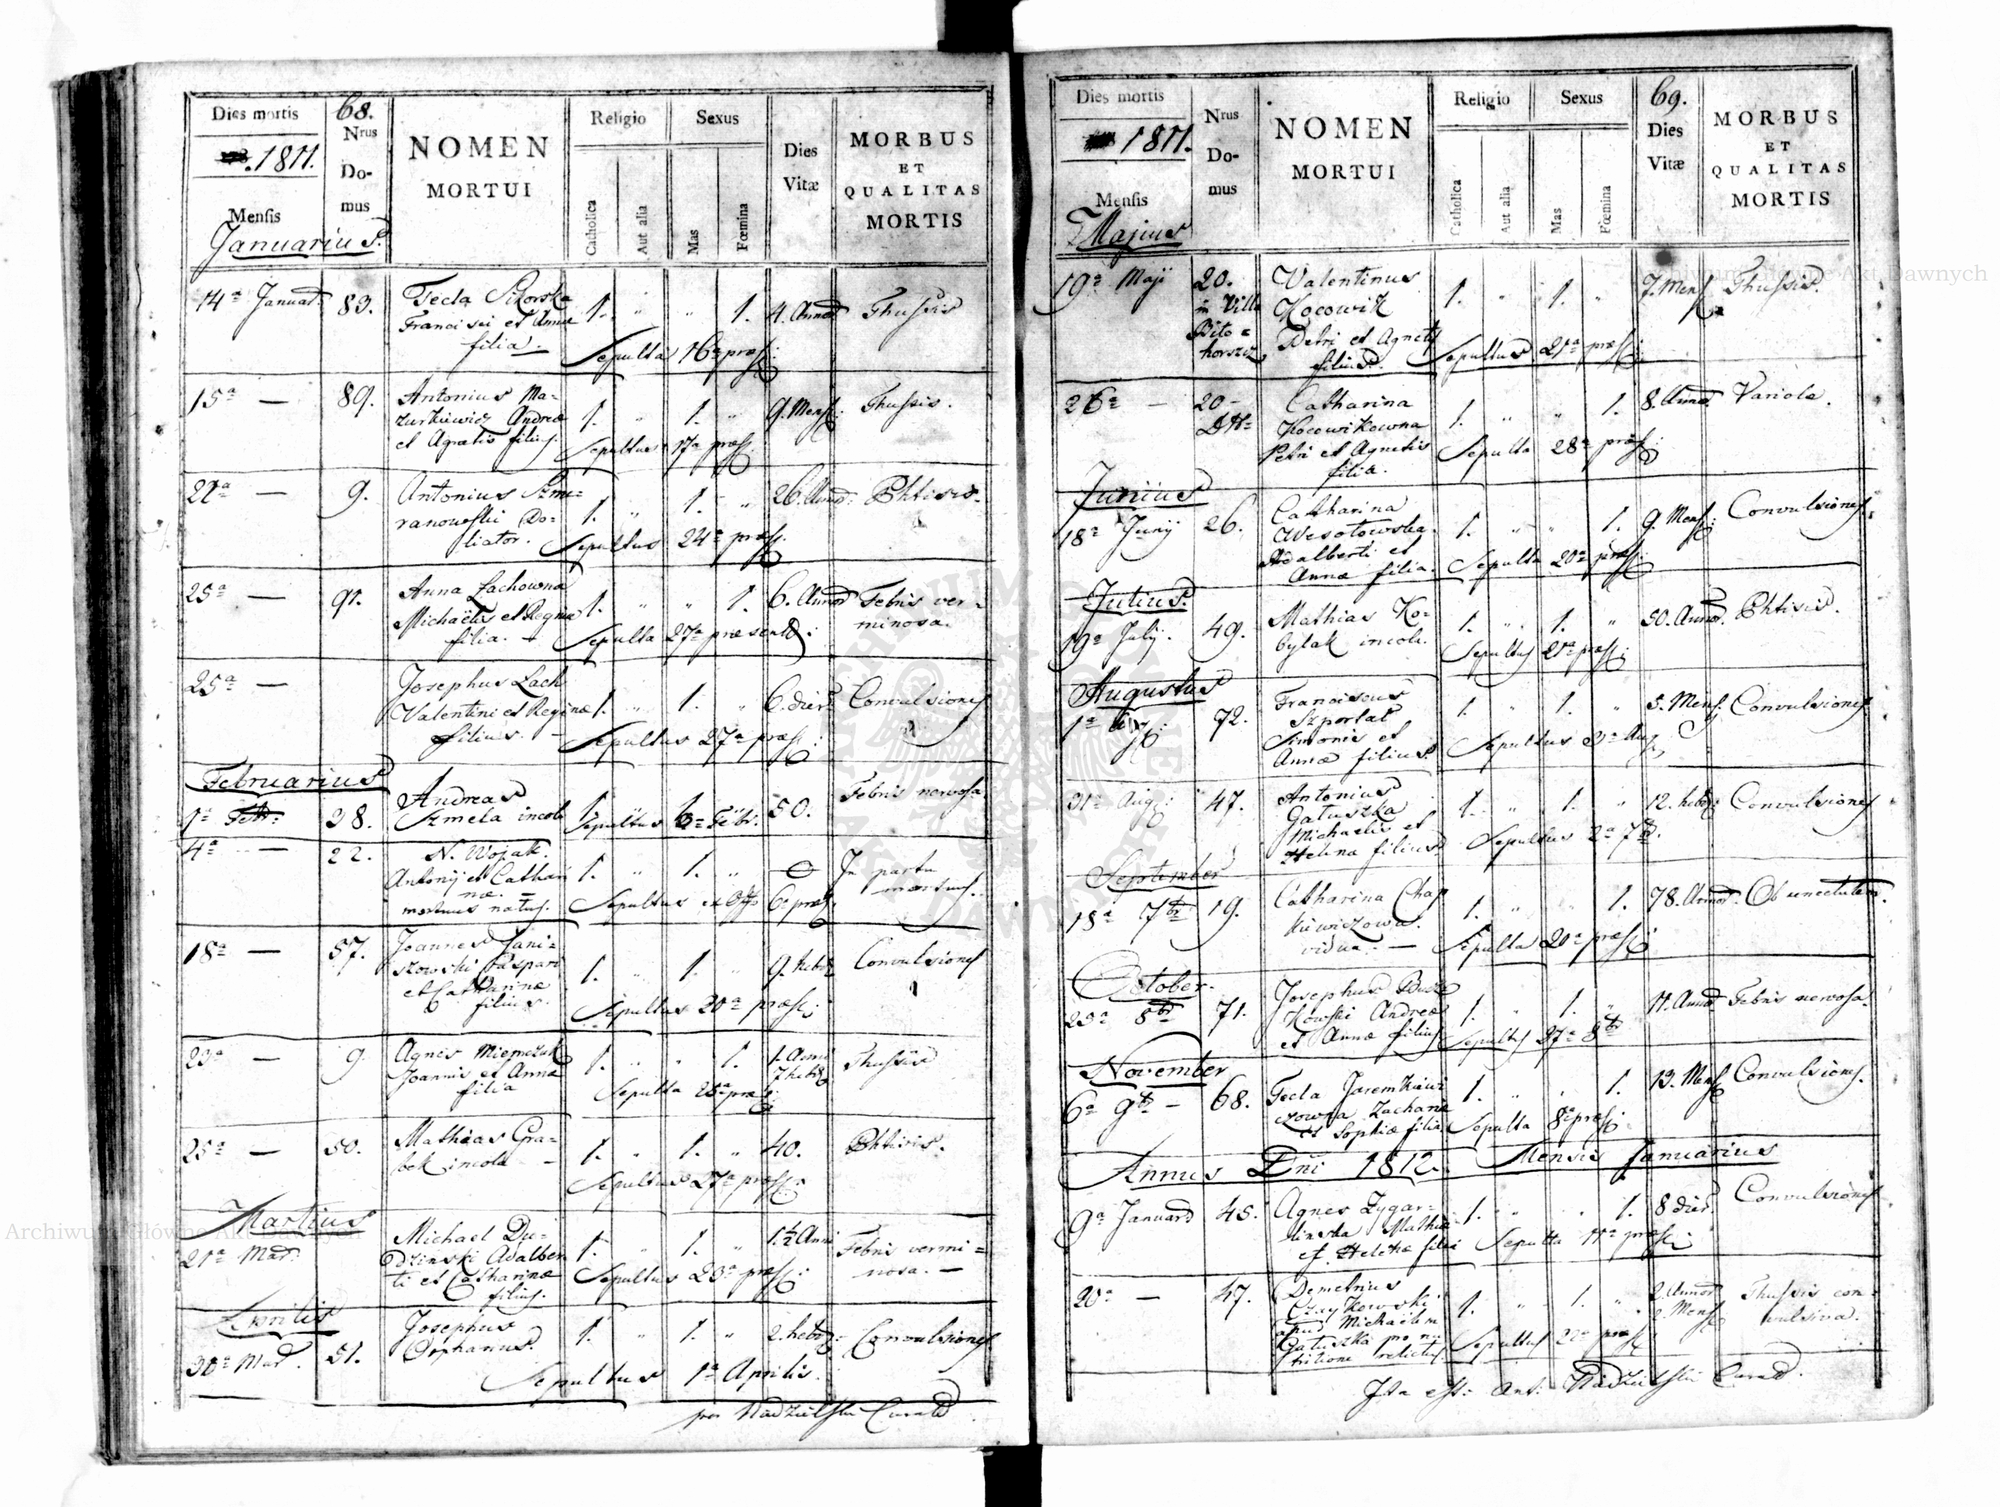 Dies mortis
68.
1811.
Mensis
Januarius
Nrus
Do-
mus
NOMEN
MORTUI
Religio
Catholica
Aut alia
Sexus
Mas
Fœmina
Dies
Vitæ
MORBUS
ET
QUALITAS
MORTIS
14a Januar. 83. Tecla Sikorska 1. " " 1. 4. Annor Thussis
Francisci et Annæ
filia. Sepulta 16a præs.
15a — 89. Antonius Ma- 1. " 1. " 9. Mens. Thussis.
zurkiewicz Andreæ
et Agnetis filius. Sepultus 17a præs.
22a — 9. Antonius Szme- 1. " 1. " 26. Annor. Phtisis.
ranowski Do-
liator. Sepultus 24a præs.
25a — 91. Anna Lachowna 1. " " 1. 6. Annor Febris ver-
Michaëlis et Reginæ minosa.
filia. — Sepulta 27a præsentis.
25a — Josephus Lach 1. " 1. " 6. dier. Convulsiones
Valentini et Reginæ
filius. — Sepultus 27a præs.
Februarius
1a Febr. 38. Andreas 1. 50. Febris nervosa.
Szmela incola Sepultus Febr.
4a — 22. N. Wojak. 1. " 1. " In partu
Antonij et Cathari- mortuus.
næ.
mortuus natus. Sepultus 6a præs.
18a — 57. Joannes Jani- 1. " 1. " 9. hebd. Convulsiones
szowski Caspari
et Catharinæ
filius. Sepultus 20a præs.
23a — 9. Agnes 1. " " 1. 1. Anni Thussis
Joannis et Annæ 7 hebd.
filia Sepulta 25a præs.
25a — 50. Mathæas Gra- 1. " 1. " 40. Phtisis.
bek incola — Sepultus 27a præs.
Martius
21a Mar. Michael Du- 1. " 1. " 1½ Anni Febris vermi-
dzinski Adalber- nosa. —
ti et Catharinæ Sepultus 23a præs.
filius.
Aprilis
30a Mar. 51. Josephus 1. " 1. " 2. hebd. Convulsiones
Orphanus. Sepultus 1a Aprilis.
Curatus
Dies mortis
1811.
Mensis
Majius
Nrus
Do-
mus
NOMEN
MORTUI
Religio
Catholica
Aut alia
Sexus
Mas
Fœmina
69.
Dies
Vitæ
MORBUS
ET
QUALITAS
MORTIS
19a Maji 20. Valentinus 1. " 1. " 7. Mens. Thussis.
in Villa Kocowik
Petri et Agnetis Sepultus 21a præs.
filius.
26a — 20 — Catharina 1. " " 1. 8. Annor. Variola.
Kocowikowna
Petri et Agnetis Sepulta 28a præs.
filia.
Junius
18a Junij 26. Catharina 1. " " 1. 9. Mens. Convulsiones.
Wesołowska
Adalberti et Sepulta 20a præs.
Annæ filia.
Julius.
19a July. 49. Mathias Ko- 1. " 1. " 50. Annor. Phtisis.
bylak incola. Sepultus 21a præs.
Augustus
1a Aug. 72. Franciscus 1. " 1. " 5. Mens. Convulsiones.
Szportal
Simonis et Sepultus 3a Aug.
Annæ filius.
31a Aug. 47. Antonius 1. " 1. " 12. hebd. Convulsiones
Gałuszka
Michaelis et Sepultus 2a 7br.
Helena filius.
September
18a 7br 19. Catharina Chap 1. " " 1. 78. Annor. Ob senectutem.
kiewiczowa
vidua. — Sepulta 20a præs.
October.
25a 8br 71. Josephus 1. " 1. " 11. Annor. Febris nervosa.
kowski Andreæ
et Annæ filius Sepultus 27a 8br
November
6a 9br — 68. Tecla Jaremkiewi 1. " " 1. 13. Mens. Convulsiones.
czowna Zachariæ
et Sophiæ filia Sepulta 8a præs.
Annus Dni 1812. Mensis Januarius
9a Januar 45. Agnes Zygar- 1. " " 1. 8 dier. Convulsiones
linska Mathiæ
et Helenæ filia Sepulta 11a præs.
20a — 47. Demetrius 1. " 1. " 2. Annor Thussis con-
Czaykowski 2. Mens. vulsiva.
apud Michaëlem
Gałuszka pro nu
tritione relictus Sepultus 22a præs.
Ita est. Ant. Curatus.
Archiwum Główne Akt Dawnych
Archiwum Główne Akt Dawnych
ARCHIWUM GŁÓWNE AKT DAWNYCH